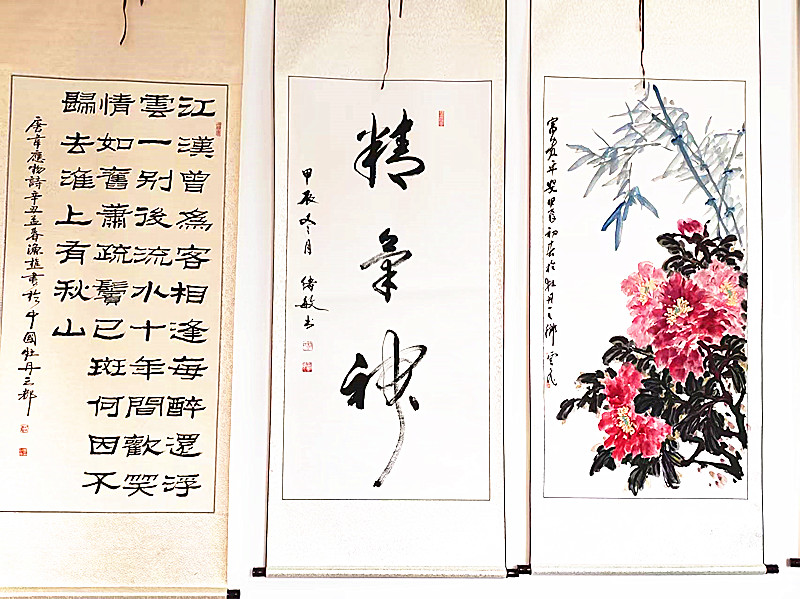 江漢曾為客相逢每醉還浮
雲一別後流水十年間歡笑
情如舊蕭疏鬢已斑何因不
歸去淮上有秋山
唐韋應物詩辛丑孟春書於中國牡丹之都
精氣神
甲辰冬月
绪敏书
富贵平安甲辰初春於牡丹之鄉雲民